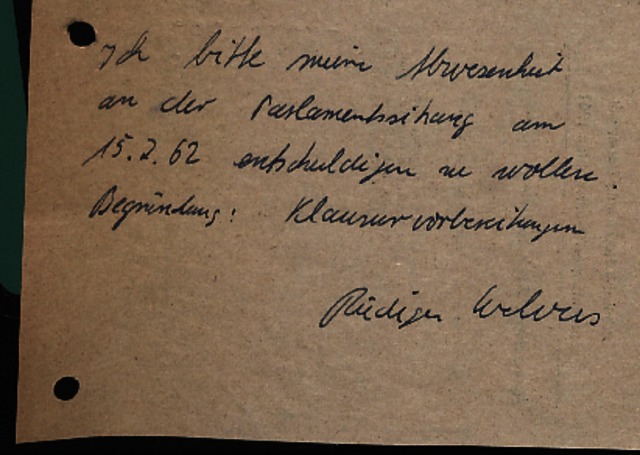 Ich bitte meine Abwesenheit
an der Parlamentssitzung am
15.2.62 entschuldigen zu wollen.
Begründung: Klausurvorbereitungen
Rüdiger